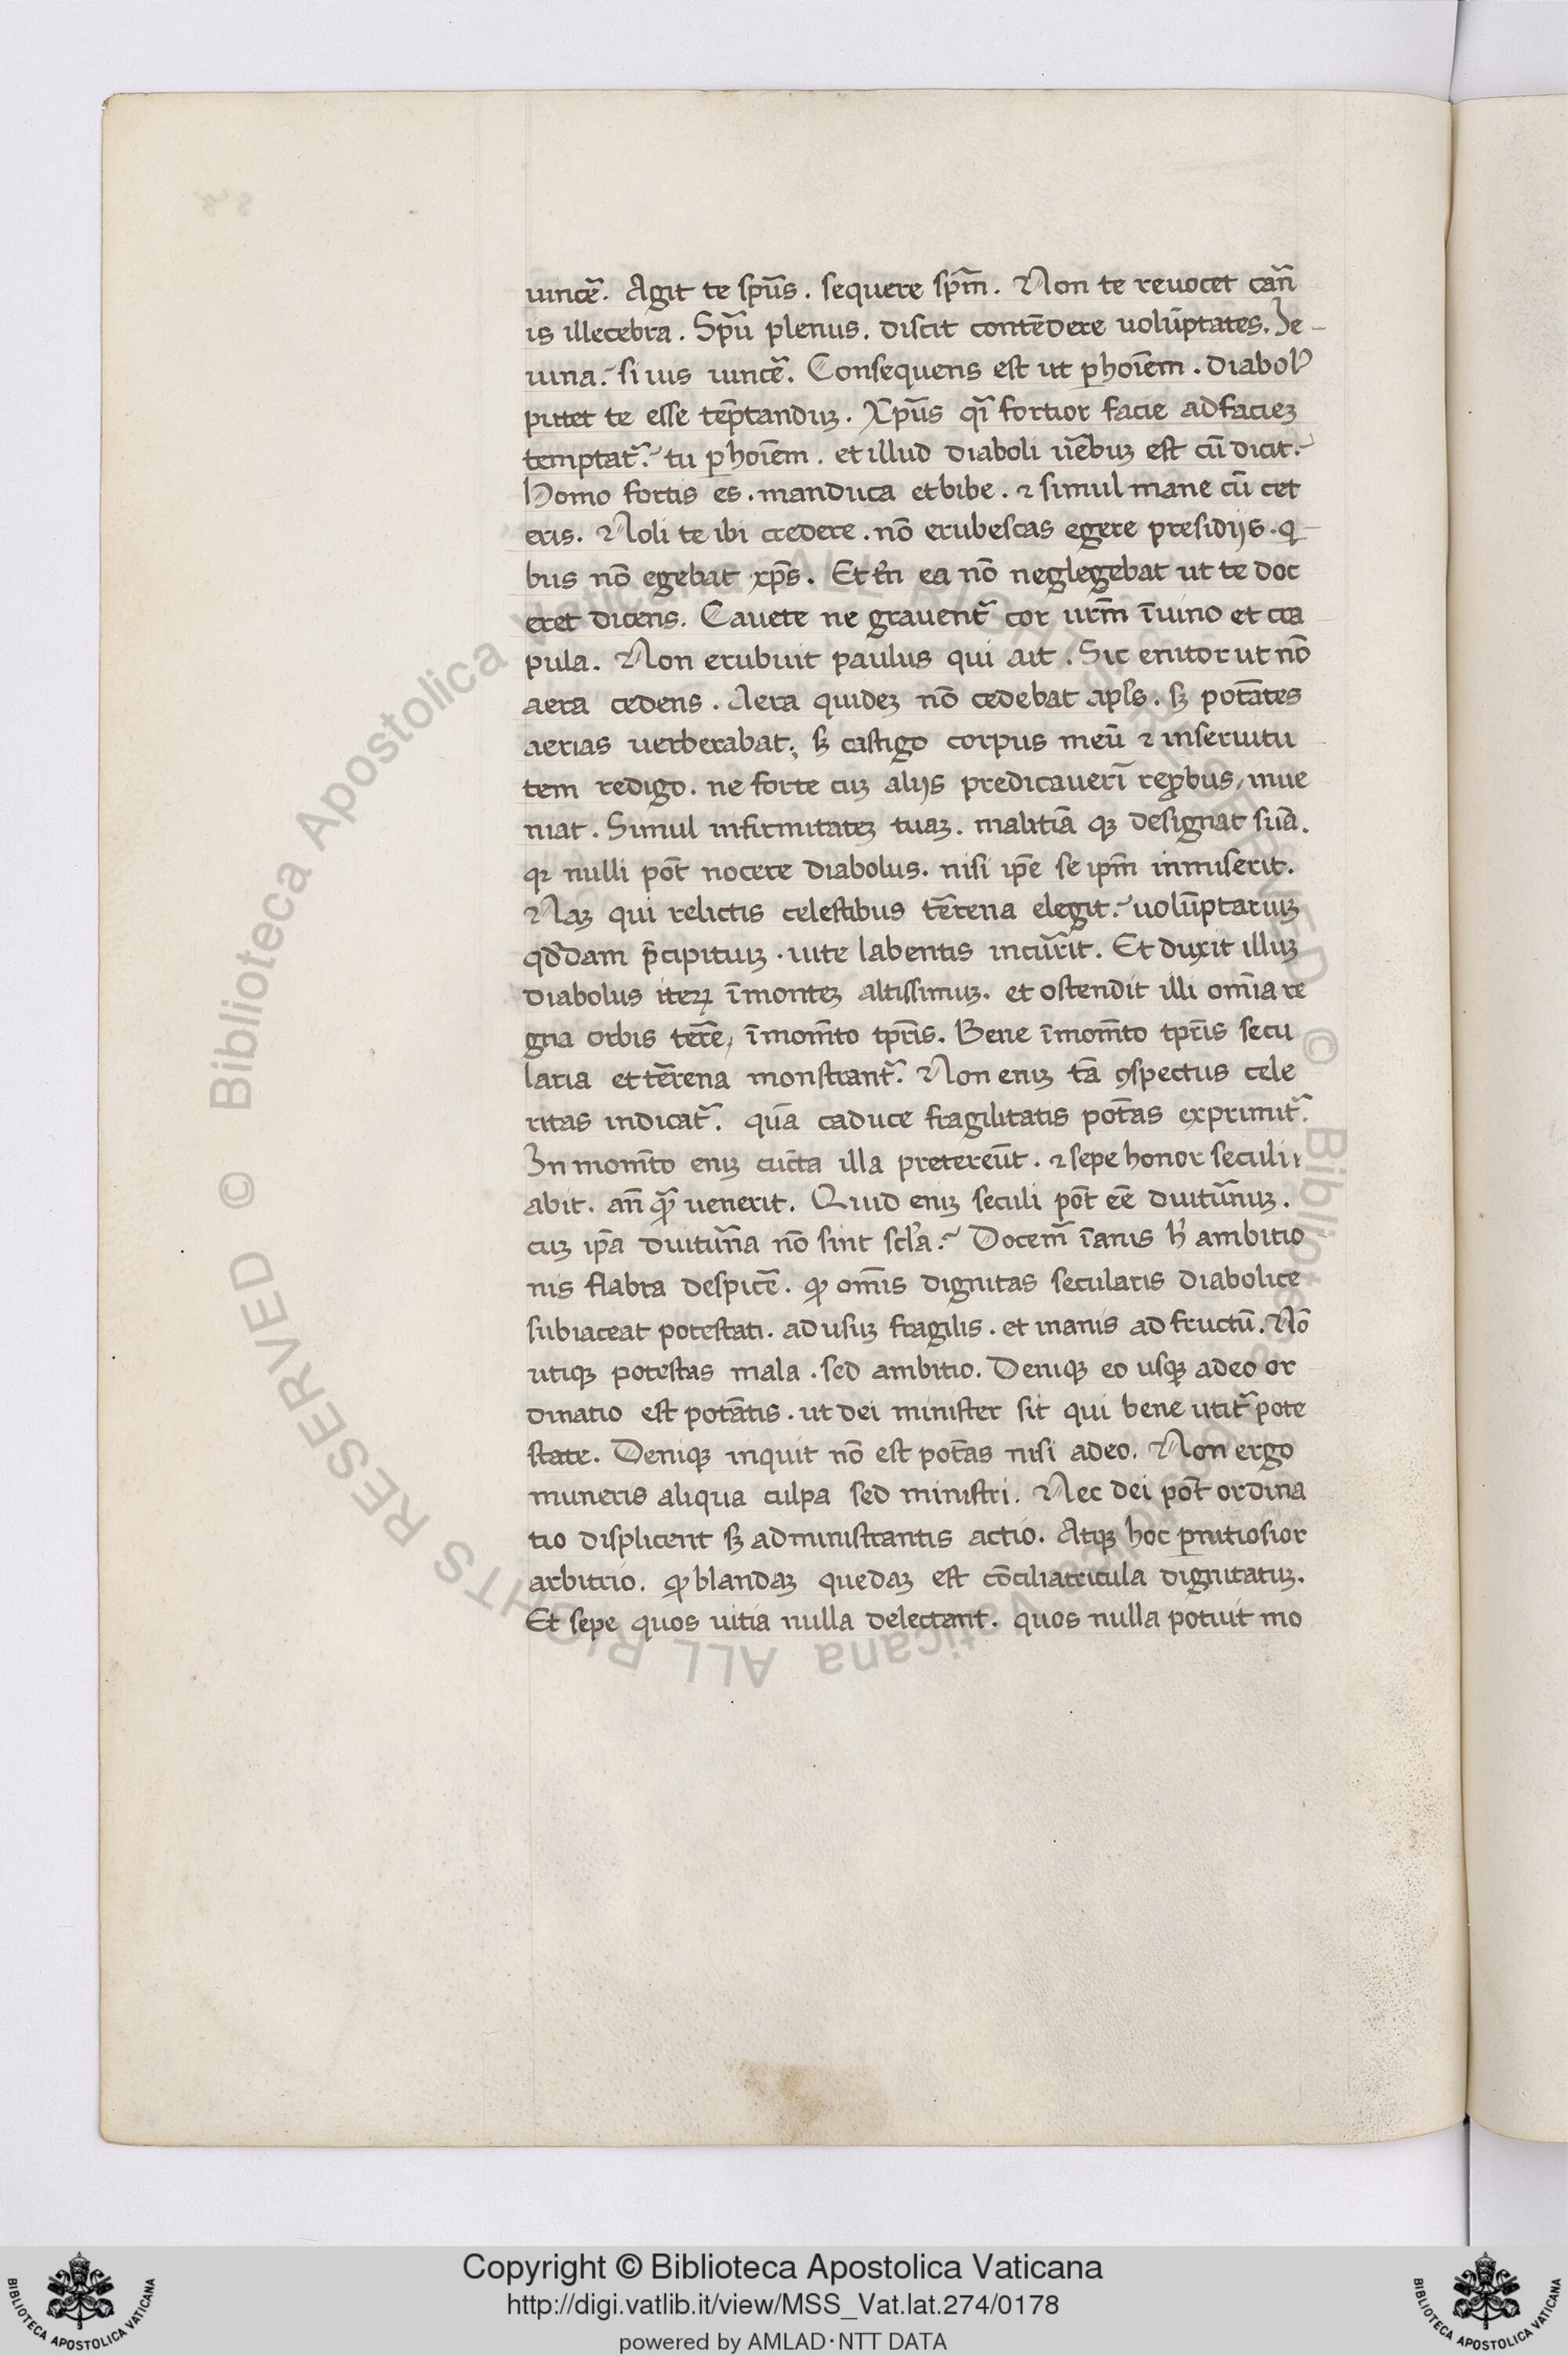 uincẽ. Agit te sp̃us. sequere sp̃m. Non te reuocet car̃n
is illecebra. Sp̃u plenus. discit contẽdere uolũptates. Ie-
iuna. si uis uincẽ. Consequens est ut ꝑ hoĩem. diabolꝰ
putet te esse tẽptanduꝫ. Xp̃us qĩ fortior facie ad facieꝫ
temptat̃. tu ꝑ hoĩem. et illud diaboli ũebuꝫ est cũ dicit.
Homo fortis es. manduca et bibe. ⁊ simul mane cũ cet
eris. Noli te ibi credere. nõ erubescas egere presidijs. q-
bus nõ egebat xp̃s. Et tñ ea nõ neglegebat ut te doc
eret dicens. Cauete ne grauent̃ cor ur̃m ĩ uino et cra
pula. Non erubuit paulus qui ait. Sic enitor ut nõ
aera cedens. Aera quideꝫ nõ cedebat apl̃s. sꝫ potãtes
aerias uerberabat. sꝫ castigo corpus meũ ⁊ in seruitu
tem redigo. ne forte cuꝫ alijs predicauerĩ reꝓbus inue
niat. Simul infirmitateꝫ tuaꝫ. malitiã qꝫ designat suã.
qꝛ nulli põt nocere diabolus. nisi ip̃e se ip̃m inmiserit.
Naꝫ qui relictis celestibus tẽrena elegit. uolũptariuꝫ
qd̃dam p̃cipituiꝫ. uite labentis incũrit. Et duxit illuꝫ
diabolus iteꝝ ĩ monteꝫ altissimuꝫ. et ostendit illi om̃ia re
gna orbis ter̃e, ĩ mom̃to tpr̃is. Bene ĩ mom̃to tpr̃is secu
laria et tẽrena monstrant̃. Non eniꝫ tã ꝯspectus cele
ritas indicat̃. quã caduce fragilitatis potãs exprimit̃.
In mom̃to eniꝫ cũcta illa pretereũt. ⁊ sepe honor seculi
abit. añ qꝫ̃ uenerit. Quid eniꝫ seculi põt eẽ diutũnuꝫ.
cuꝫ ip̃a diutũna nõ sint scl̃a. Docem̃ ĩanis h̃ ambitio
nis flabra despicẽ. ꝙ om̃is dignitas secularis diabolice
subiaceat potestati. ad usuꝫ fragilis. et inanis ad fructũ. Nõ
utiqꝫ potestas mala. sed ambitio. Deniqꝫ eo usqꝫ adeo or
dinatio est potãtis. ut dei minister sit qui bene utit̃ pote
state. Deniqꝫ inquit nõ est potãs nisi adeo. Non ergo
muneris aliqua culpa sed ministri. Nec dei põt ordina
tio displicent sꝫ administrantis actio. Atqꝫ hoc ꝑnitiosior
arbitrio. ꝙ blandaꝫ quedaꝫ est cõciliatricula dignitatuꝫ.
Et sepe quos uitia nulla delectant. quos nulla potuit mo
© Biblioteca Apostolica Vaticana ALL RIGHTS RESERVED © Biblioteca Apostolica Vaticana ALL RIGHTS RESERVED
Copyright © Biblioteca Apostolica Vaticana
http://digi.vatlib.it/view/MSS_Vat.lat.274/0178
powered by AMLAD·NTT DATA
BIBLIOTECA APOSTOLICA VATICANA
BIBLIOTECA APOSTOLICA VATICANA